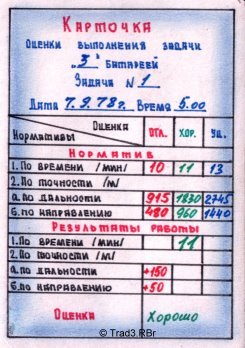 Карточка
Оценки выполнения задачи
"3" батареей
Задача № 1
Дата 7.9.78г. Время 5.00
Оценка
Нормативы
отл. хор. уд.
Норматив
1. По времени /мин/ 10 11 13
2. По точности /м/
а. по дальности 915 1830 2745
б. по направлению 480 960 1440
Результаты работы
1. По времени /мин/ 11
2. По точности /м/
а. по дальности +150
б. по направлению +50
Оценка Хорошо
© Trad3.RBr